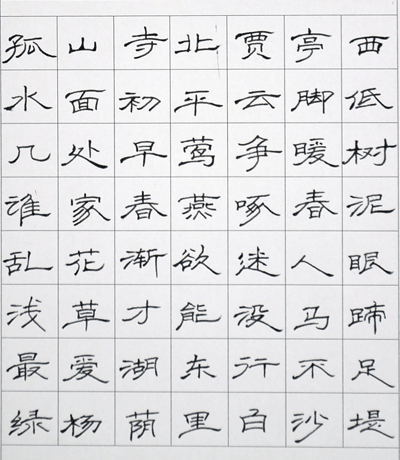 孤山寺北贾亭西
水面初平云脚低
几处早莺争暖树
谁家春燕啄春泥
乱花渐欲迷人眼
浅草才能没马蹄
最爱湖东行不足
绿杨荫里白沙堤